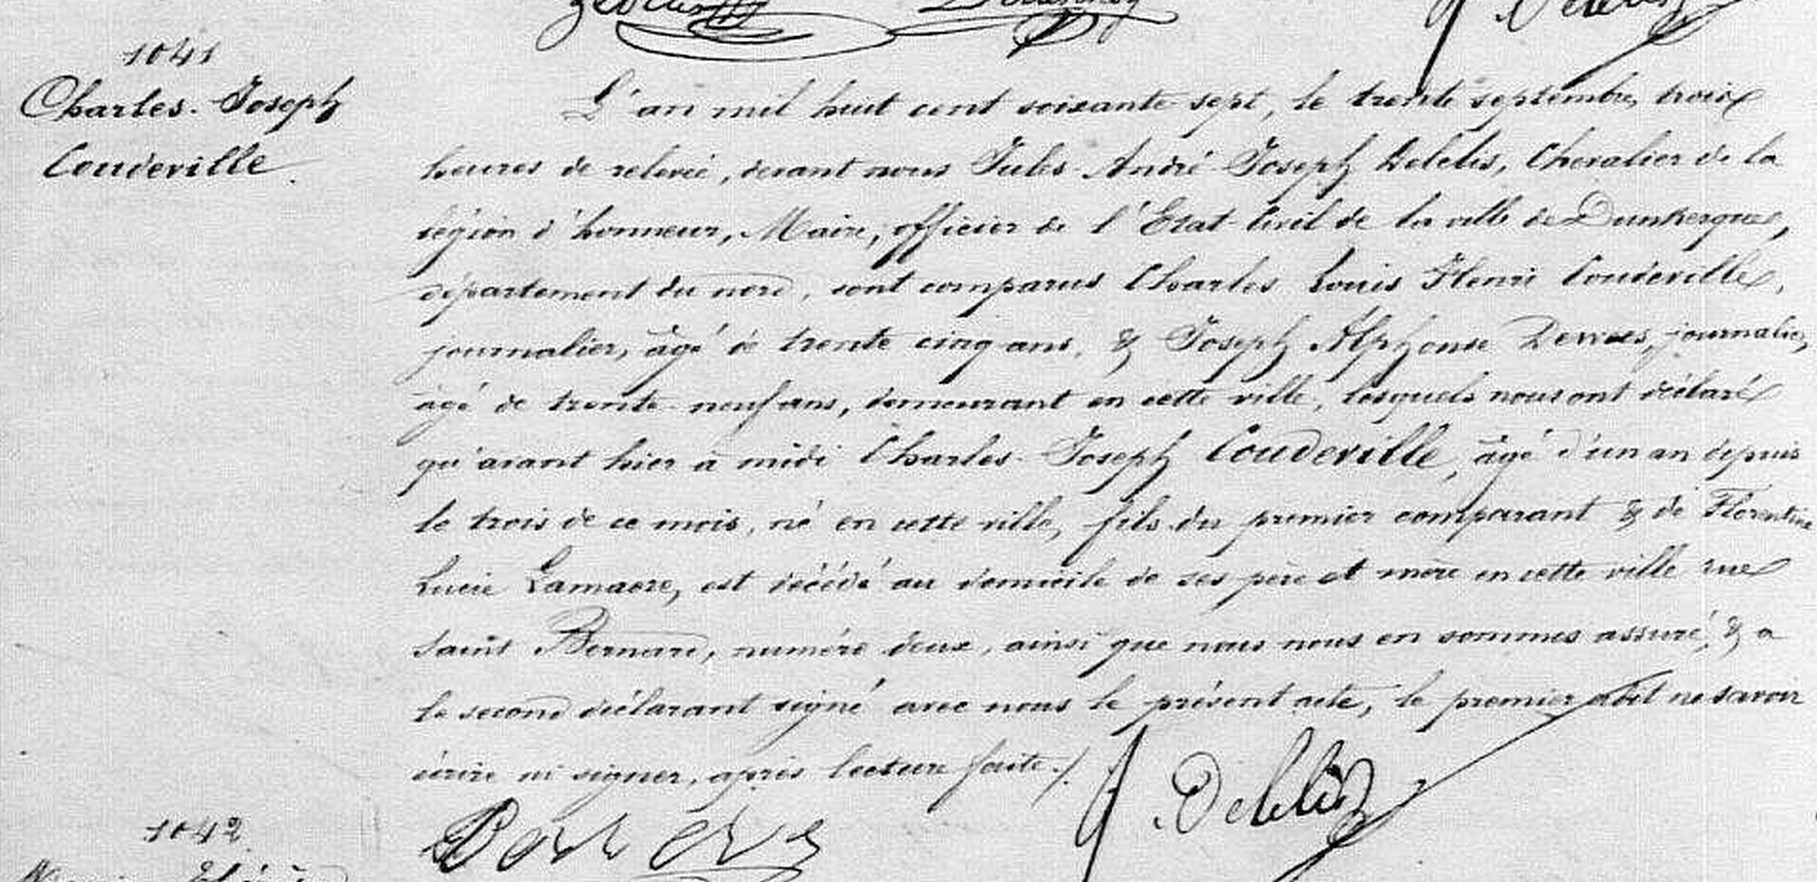 1041
Charles-Joseph
Coudeville.
L'an mil huit cent soixante sept, le trente septembre, trois
heures de relevée, devant nous Jules André Joseph Delelis, Chevalier de la
légion d'honneur, Maire, officier de l'Etat-Civil de la ville de Dunkerque,
département du nord, sont comparus Charles Louis Henri Coudeville,
journalier, âgé de trente cinq ans, & Joseph Alphonse journalier,
âgé de trente-neuf ans, demeurant en cette ville, lesquels nous ont déclaré
qu'avant hier à midi Charles-Joseph Coudeville, âgé d'un an depuis
le trois de ce mois, né en cette ville, fils du premier comparant & de Florentine
Lucie Lamaere, est décédé au domicile de ses père et mère en cette ville rue
Saint Bernard, numéro deux, ainsi que nous nous en sommes assuré, & a
le second déclarant signé avec nous le présent acte, le premier a dit ne savoir
écrire ni signer, après lecture faite./.
J. Delelis
1042